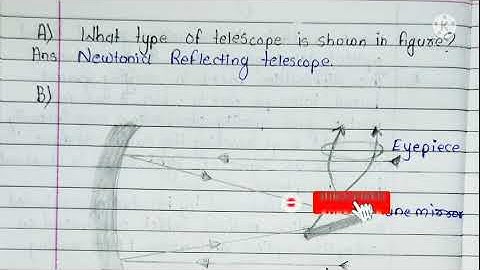 A) What type of telescope is shown in figure?
Ans Newtonia Reflecting telescope.
B)
Eyepiece
mirror